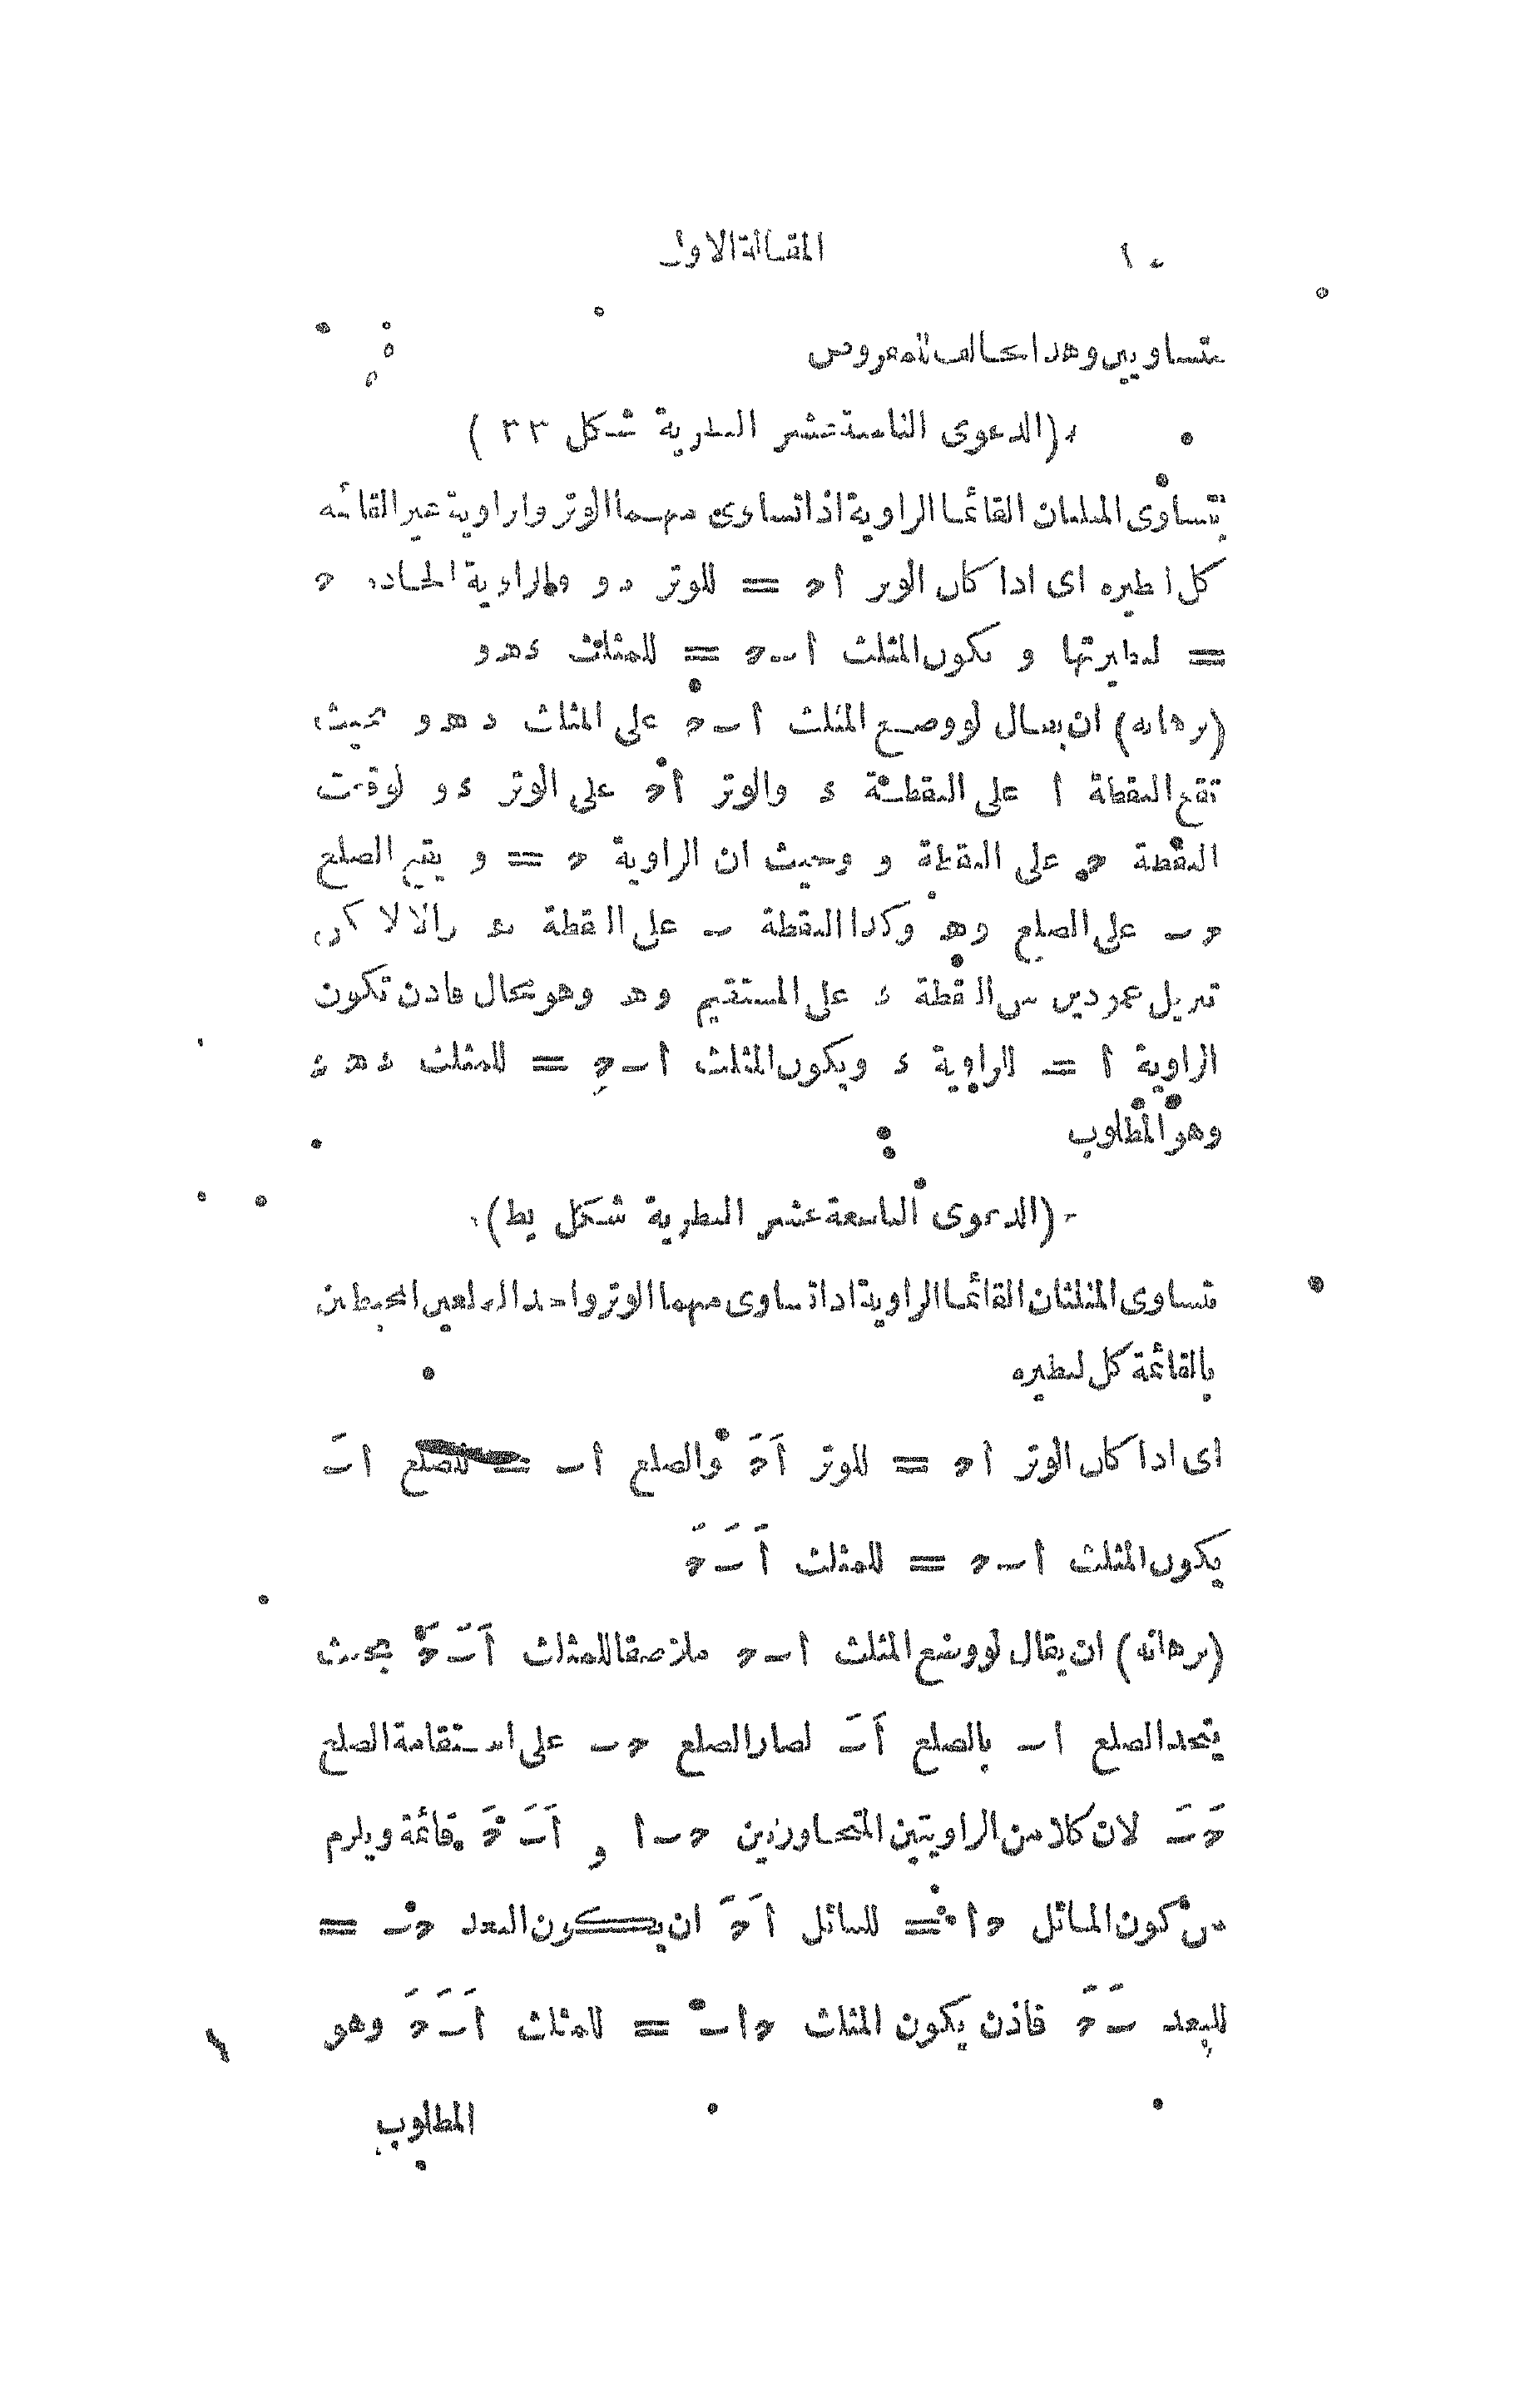 المقالة الاولى
متساويين وهذا مخالف للمفروض
(الدعوى الثامنة عشر النظرية شكل ٣٣)
يتساوى المثلثان القائما الزاوية اذا تساوى منهما الوتر وازاوية غير القائمه
كل لنظيره اى اذا كان الوتر أ ح = للوتر د و والزاوية الحاده ح
= لنظيرتها و يكون المثلث أ ب ح = للمثلث ء ه و
(برهانه) ان يقال لو وضع المثلث أ ب ح على المثلث د ه و بحيث
تقع النقطة أ على النقطة ء والوتر أ ح على الوتر ء و لوقعت
النقطة ح على النقطة و وحيث ان الزاوية ح = و يقع الضلع
ح ب على الضلع و ه وكذا النقطة ب على النقطة ه والا لامكن
تنزيل عمودين من النقطة ء على المستقيم و ه وهو محال فاذن تكون
الزاوية أ = للزاوية ء ويكون المثلث أ ب ح = للمثلث ء ه و
وهو المطلوب
(الدعوى التاسعة عشر النظرية شكل يط)
يتساوى المثلثان القائما الزاوية اذا تساوى منهما الوتر واحد الضلعين المحيطين
بالقائمة كل لنظيره
اى اذا كان الوتر أ ح = للوتر أَ حَ والضلع أ ب = للضلع أ بَ
يكون المثلث أ ب ح = للمثلث أَ بَ حَ
(برهانه) ان يقال لو وضع المثلث أ ب ح ملاصقا للمثلث أَ بَ حَ بحيث
يتحد الضلع ا ب بالضلع أَ بَ لصار الضلع ح ب على استقامة الضلع
حَ بَ لان كلا من الزاويتين المتجاورتين ح ب أ و أَ بَ حَ قائمة ويلزم
من كون المائل ح أ = للمائل أَ حَ ان يكون البعد ح ب =
للبعد بَ حَ فاذن يكون المثلث ح ا ب = للمثلث أَ بَ حَ وهو
المطلوب